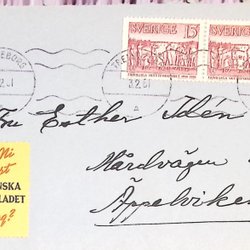 SVERIGE 15 SVERIGE
EBORG
2.61
TRE
3.2.61
Fru Esther Idén
Mårdvägen
Äppelviken
Ni
st
NSKA
LADET
g?